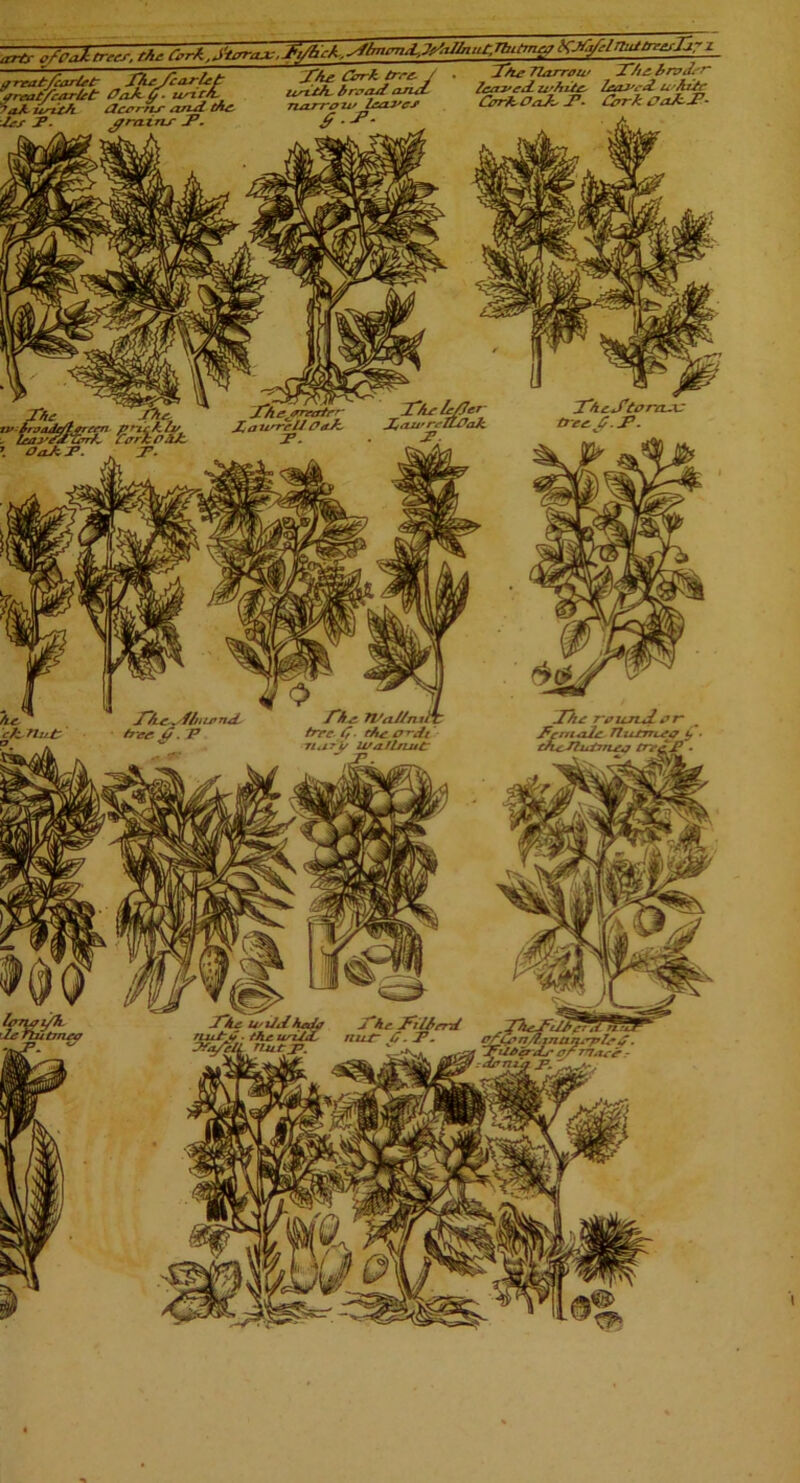 of Oak trees, the Cork, Storax, Fistick, Almond, Wallnut, Nutmeg & Hasel Nut trees
great scarlet
great scarlet
oak with
P.
The scarlet
Oak G. with
acorns and the
grains P.
The Cork tree
with broad and
narrow leaves
G. P.
The Narrow
leaved white
Cork Oak P.
The broder
leaved white
Cork Oak P.
The
broadest green
leaved Cork
Oak P.
The
prickly
Cork Oak
P.
The greater
Laurell Oak
P.
The lesser
Laurell Oak
P.
The Storax
tree G. P.
Nut
The Almond
tree G. P
The Wallnut
tree G. the ordi
nary wallnut
P.
The round or
Female Nutmeg G.
the Nutmeg tree P.
longish
Nutmeg
P.
The wild hedg
nut G. the wild
Hasell nut P.
The Filberd
nut G. P.
The Filberd nut
of Constantinople G.
Filberds of Mace-
donia P.